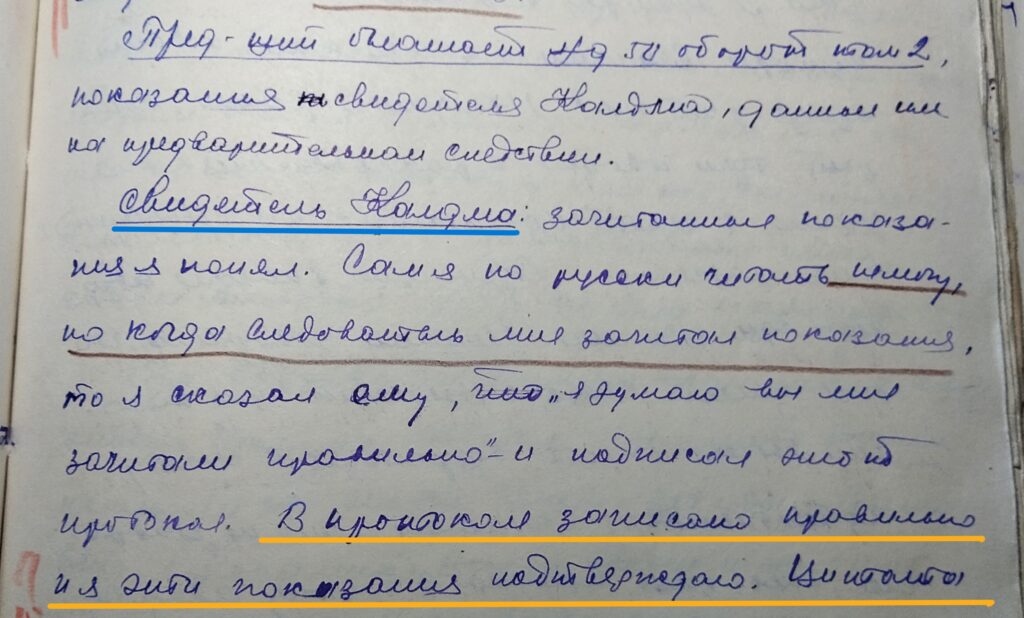 Пред-щий оглашает лд 50 оборот том 2,
показания свидетеля Калдма, данные им
на предварительном следствии.
Свидетель Калдма: зачитанные показа-
ния я понял. Сам я по русски читать немогу,
но когда следователь мне зачитал показания,
то я сказал ему, что „я думаю вы мне
зачитали правильно" - и подписал этот
протокол. В протоколе записано правильно
и я эти показания подтверждаю.